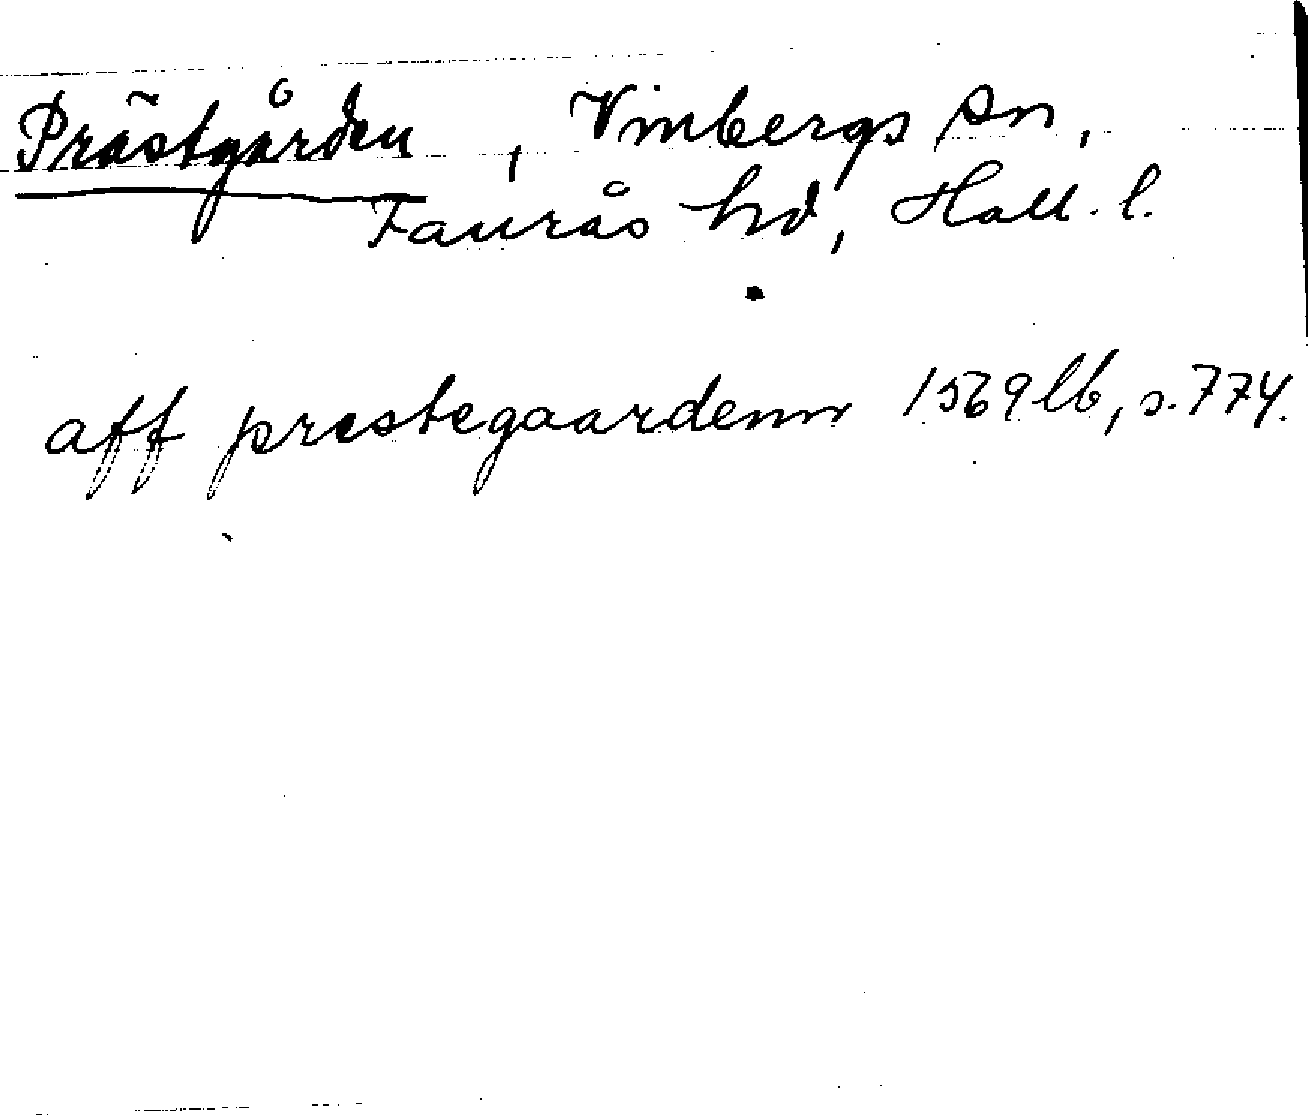 Prästgården, Vinbergs sn,
Faurås hd, Hall. l.
aff prestegaardenn 1569 lb, s. 774.